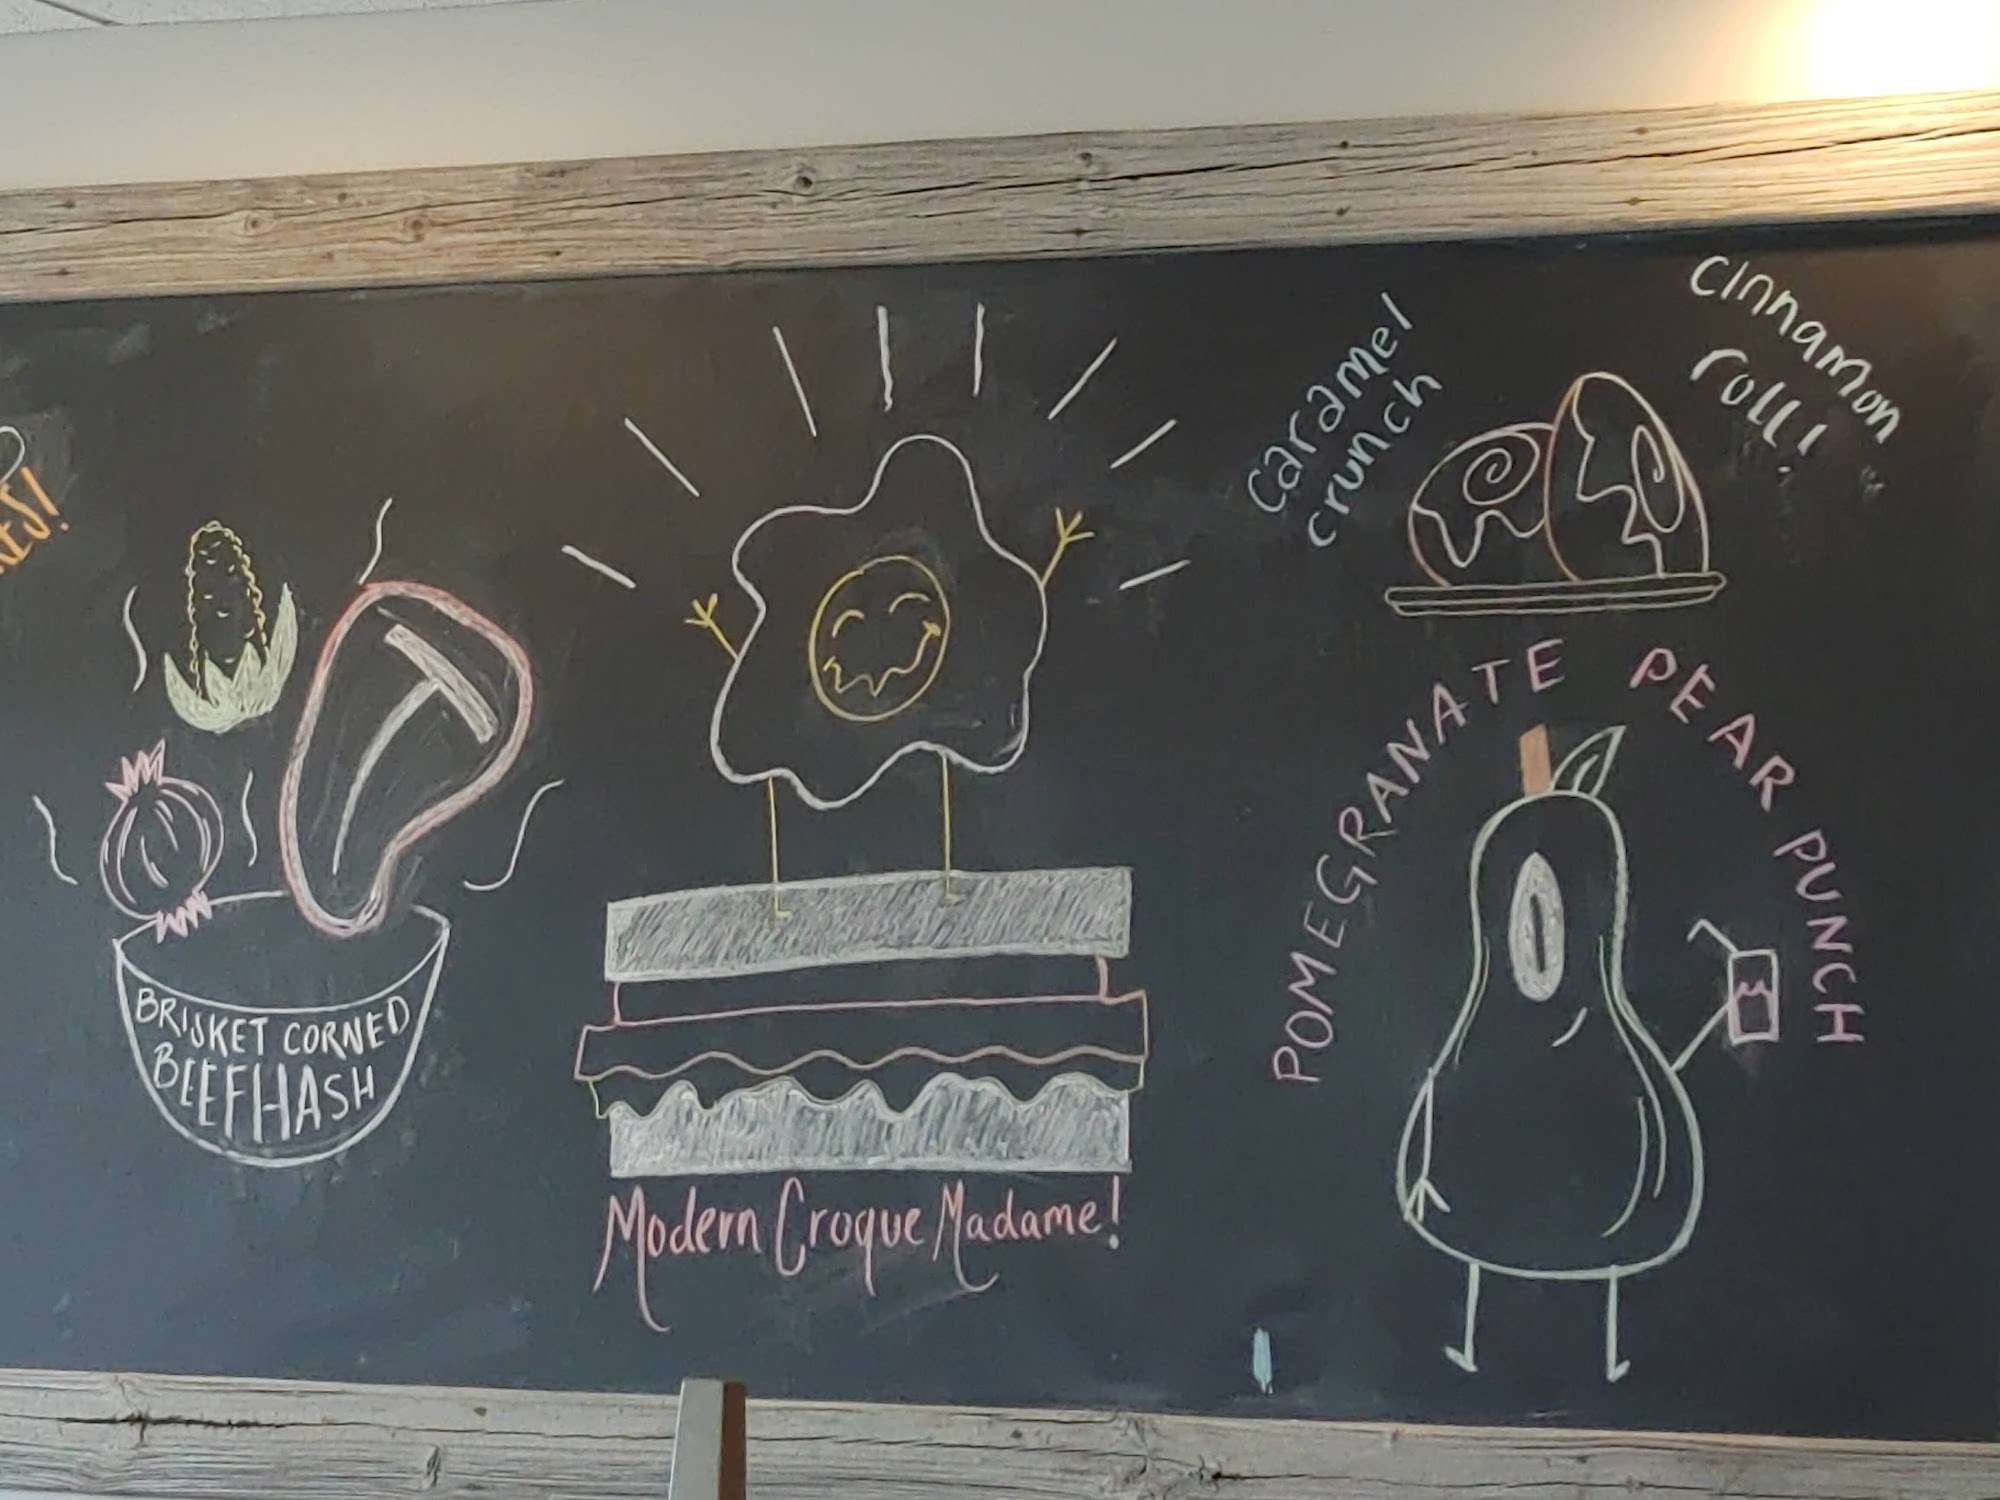 BRISKET CORNED
BEEFHASH
Modern Croque Madame!
caramel
crunch
cinnamon
roll!
POMEGRANATE PEAR PUNCH